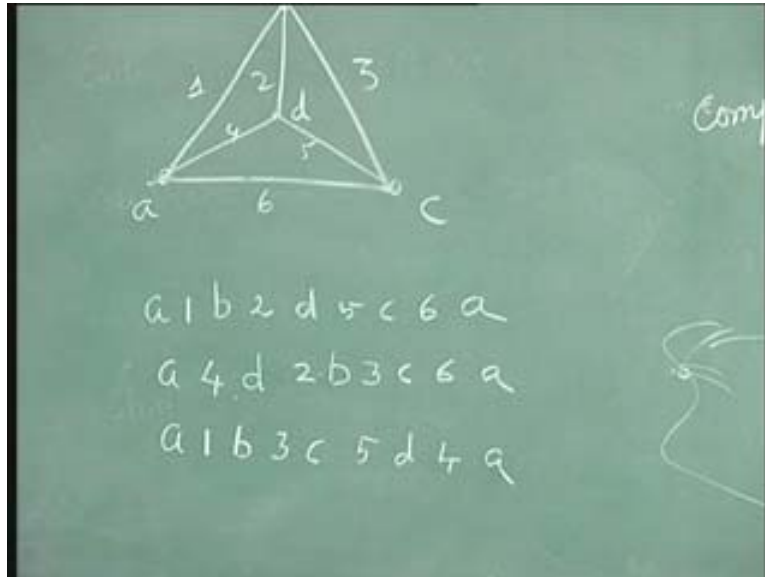 1
2
3
d
4
5
a
6
c
Com
a 1 b 2 d 5 c 6 a
a 4 d 2 b 3 c 6 a
a 1 b 3 c 5 d 4 a